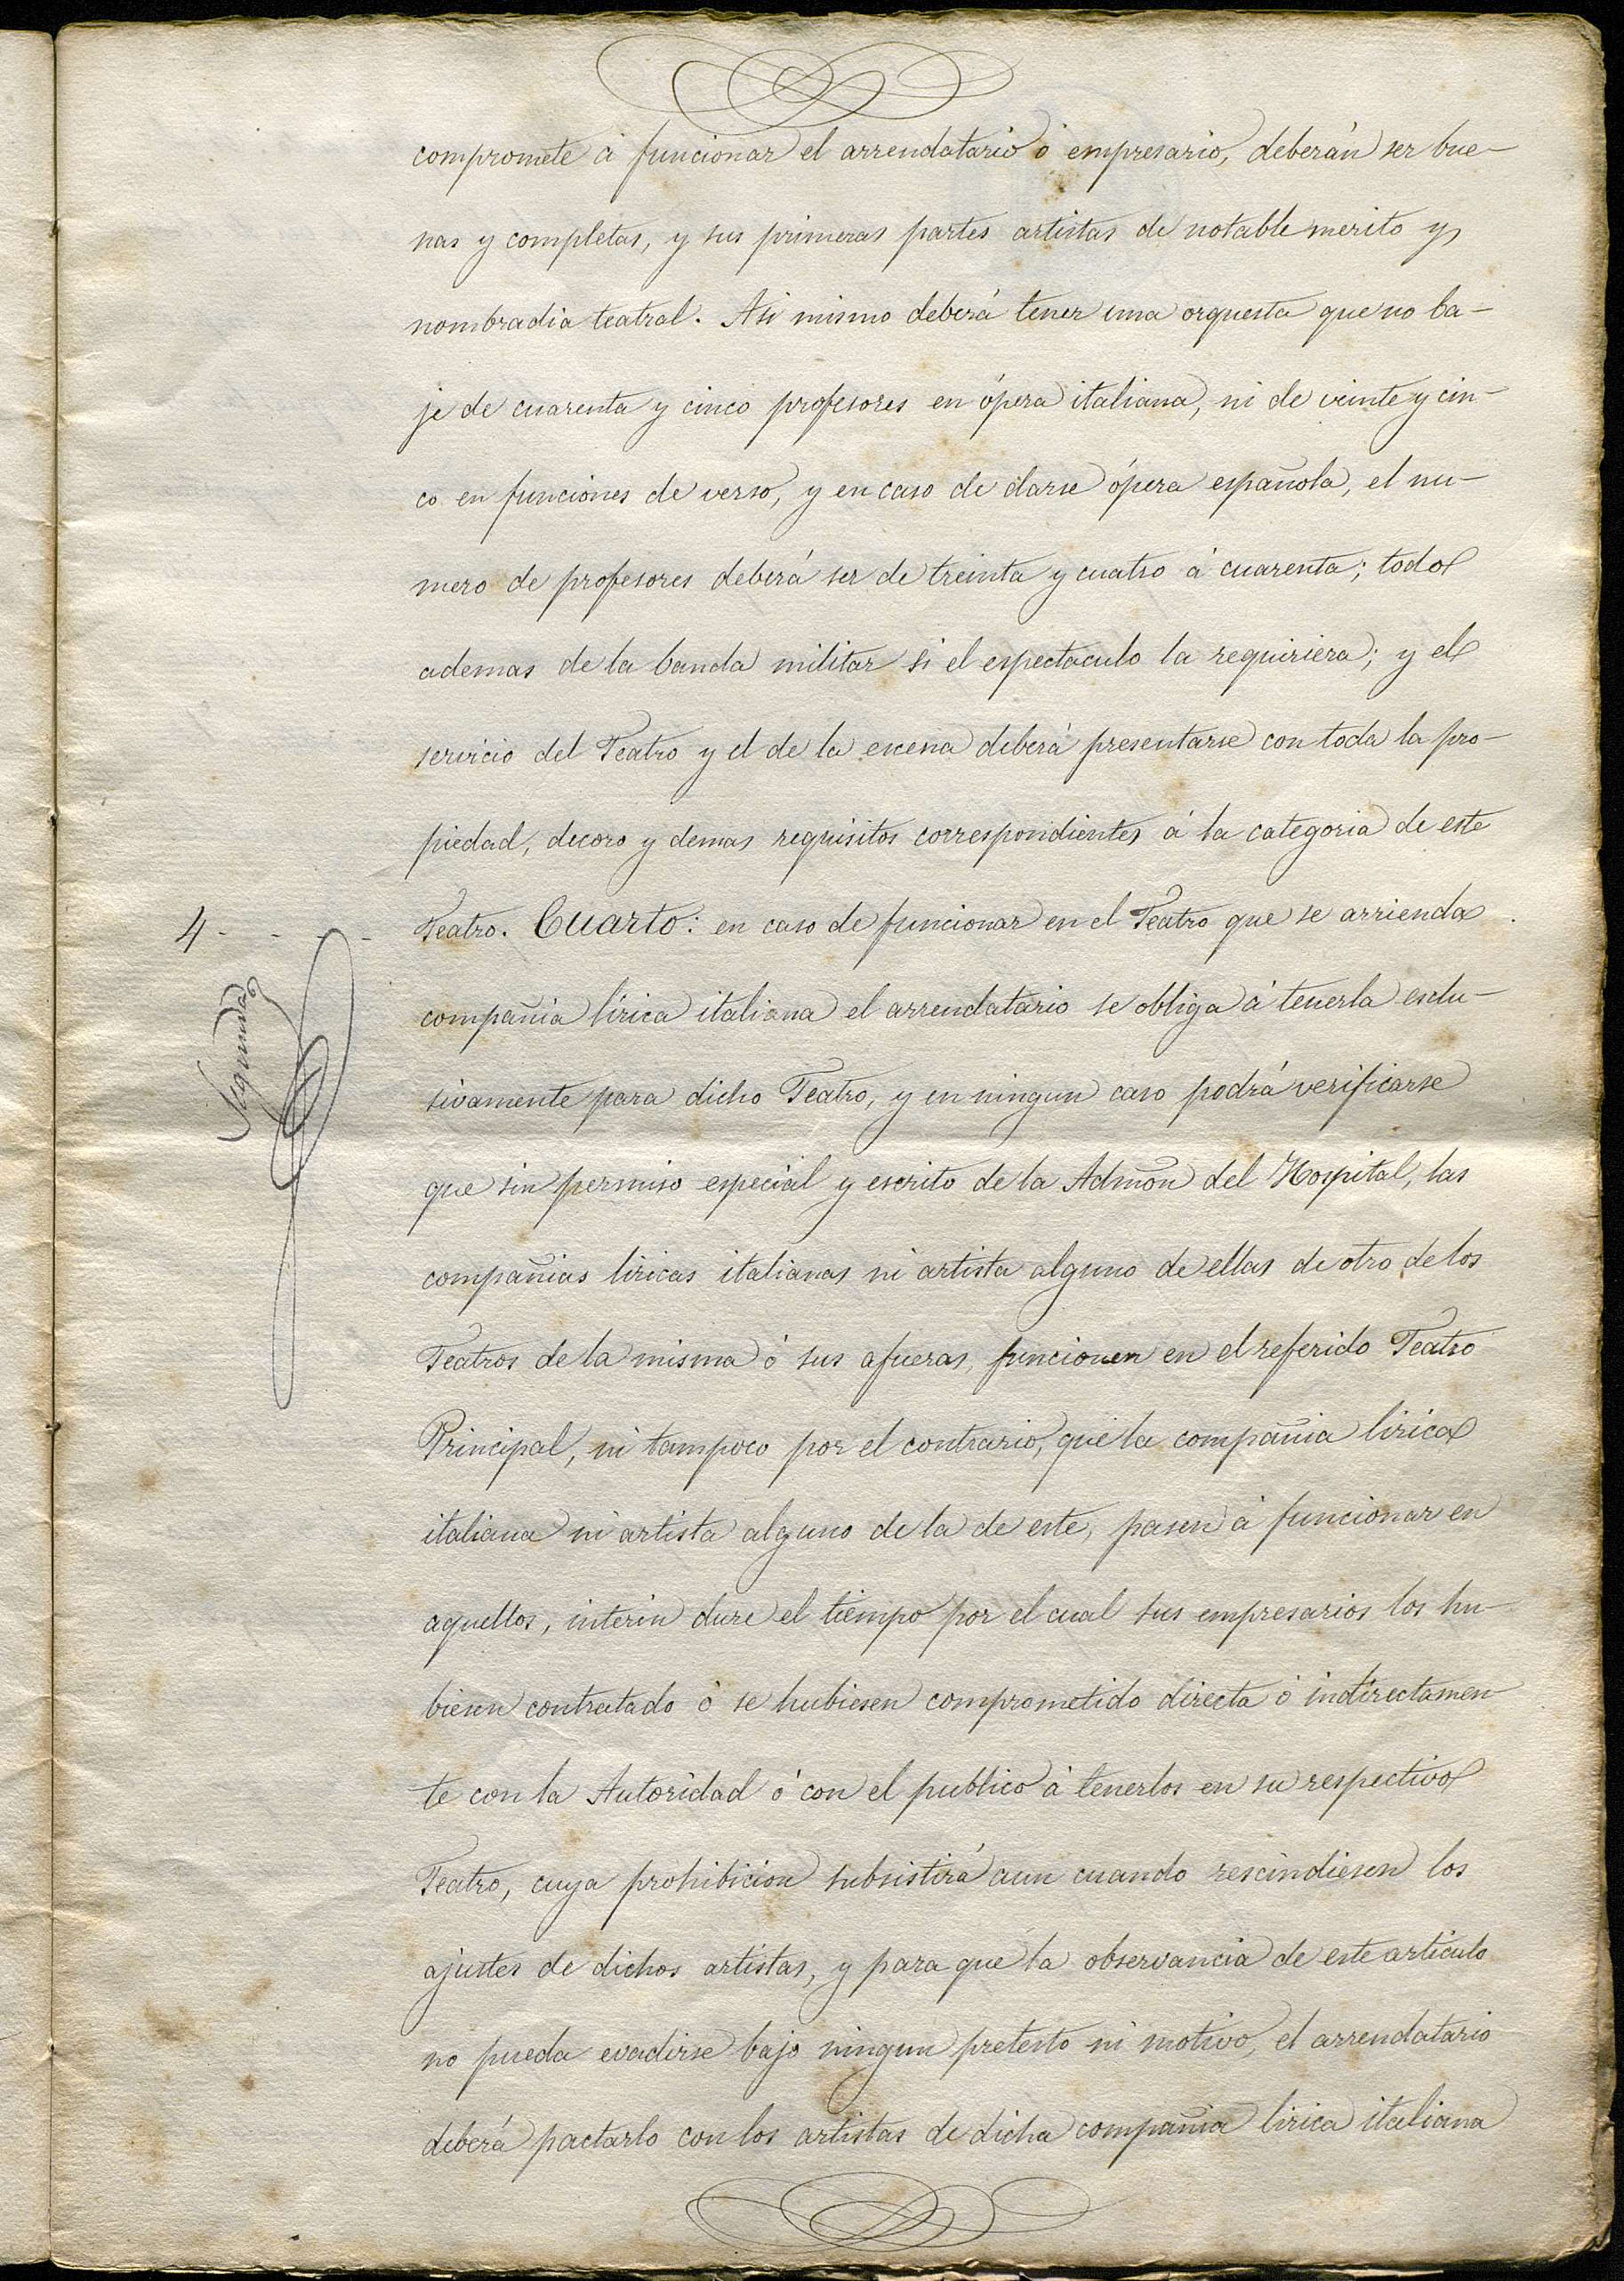 compromete á funcionar el arrendatario ó empresario, deberán ser bue-
nas y completas, y sus primeras partes artistas de notable merito y
nombradia teatral. Asi mismo deberá tener una orquesta que no ba-
je de cuarenta y cinco profesores en ópera italiana, ni de veinte y cin-
co en funciones de verso, y en caso de darse ópera española, el nu-
mero de profesores deberá ser de treinta y cuatro á cuarenta; todo
ademas de la banda militar si el espectaculo la requiriera; y el
servicio del Teatro y el de la escena deberá presentarse con toda la pro-
piedad, decoro y demas requisitos correspondientes á la categoria de este
4 - - - - Teatro. Cuarto: en caso de funcionar en el Teatro que se arrienda
compañia lírica italiana el arrendatario se obliga á tenerla esclu-
sivamente para dicho Teatro, y en ningun caso podrá verificarse
que sin permiso especial y escrito de la Admõn del Hospital, las
compañias liricas italianas ni artista alguno de ellas de otro de los
Teatros de la misma ó sus afueras, funcionen en el referido Teatro
Principal, ni tampoco por el contrario, que la compañia lirica
italiana ni artista alguno de la de este, pasen á funcionar en
aquellos, interin dure el tiempo por el cual sus empresarios los hu-
biesen contratado ó se hubiesen comprometido directa ó indirectamen-
te con la Autoridad ó con el publico á tenerlos en su respectivo
Teatro, cuya prohibicion subsistirá aun cuando rescindiesen los
ajustes de dichos artistas, y para que la observancia de este articulo
no pueda evadirse bajo ningun pretesto ni motivo, el arrendatario
deberá pactarlo con los artistas de dicha compañia lirica italiana